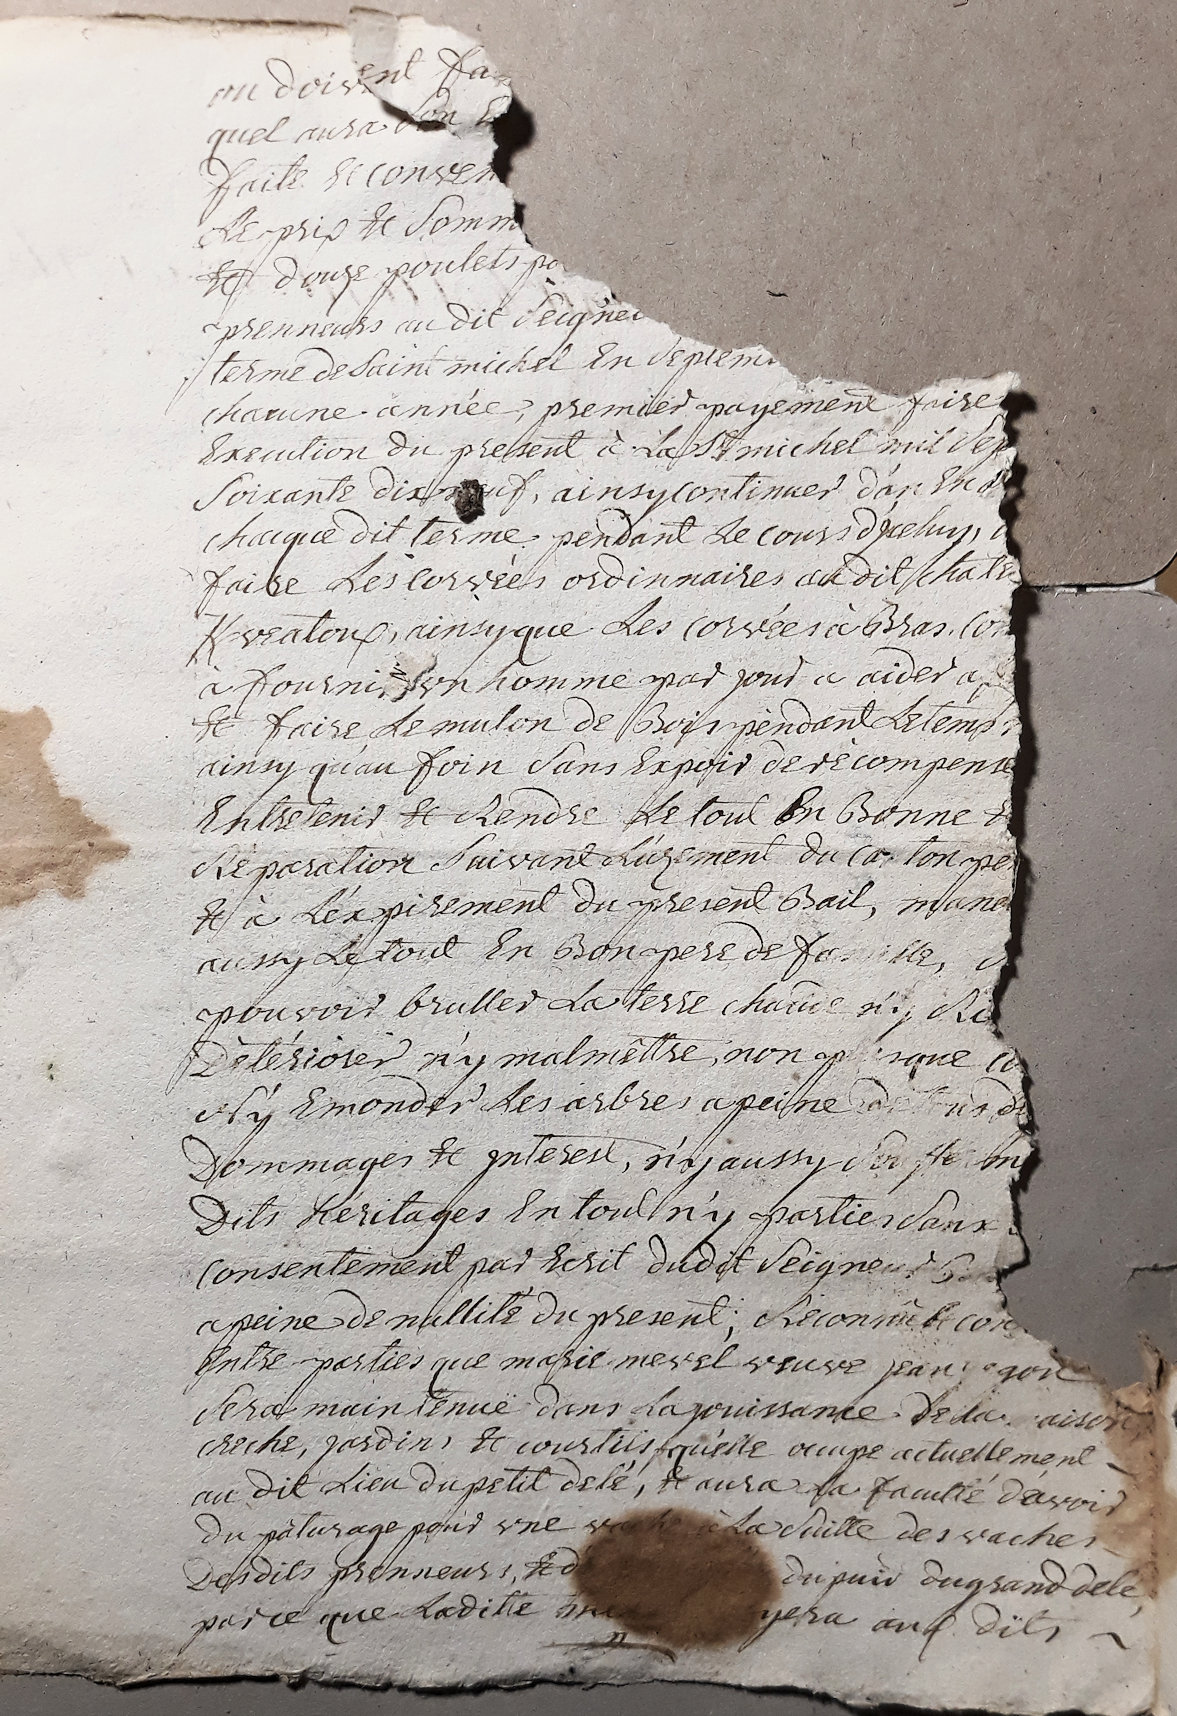 ou doivent fa
quel aura son
faite et conven
Le prix et Somm
et douze poulets pa
prenneurs au dit Seigneu
terme de Saint michel En Septem
chacune année, premier payement faire
Execution du present à La St michel mil Sep
Soixante dix neuf, ainsy continuer d'an En
chaque dit terme pendant Le cours d'yceluy,
faire Les corvées ordinnaires au dit chate
Kveatoux, ainsy que Les corvées à Bras, con
à fournir un homme par jour a aider a
et faire Le mulon de Bois pendant Le temps
ainsy qu'au foin Sans Expoir de récompense
Entretenir et Rendre Le tout En Bonne
Réparation Suivant L'uzement du canton pe
et à L'éxpirement du present Bail, mane
aussy Le tout En Bon pere de famille,
pouvoir bruller La terre chaude n'y
Détériorer n'y malmêttre, non plus que
N'y Emonder Les arbres a peine de tous
Dommages et jnterest, n'y aussy
Dits héritages En tout n'y parties Sans
consentement par Ecrit dudit Seigneur
a peine de nullité du present; Reconnu et con
Entre parties que marie mevel veuve jean
Sera maintenuë dans La jouissance De la maison,
creche, jardins et courtils qu'elle occupe actuellement
au dit Lieu du petit delé, et aura La faculté d'avoir
du pâturage pour une vache à La Suitte des vaches
Desdits prenneurs, et du puir du grand dele,
parce que Laditte yera aux dits